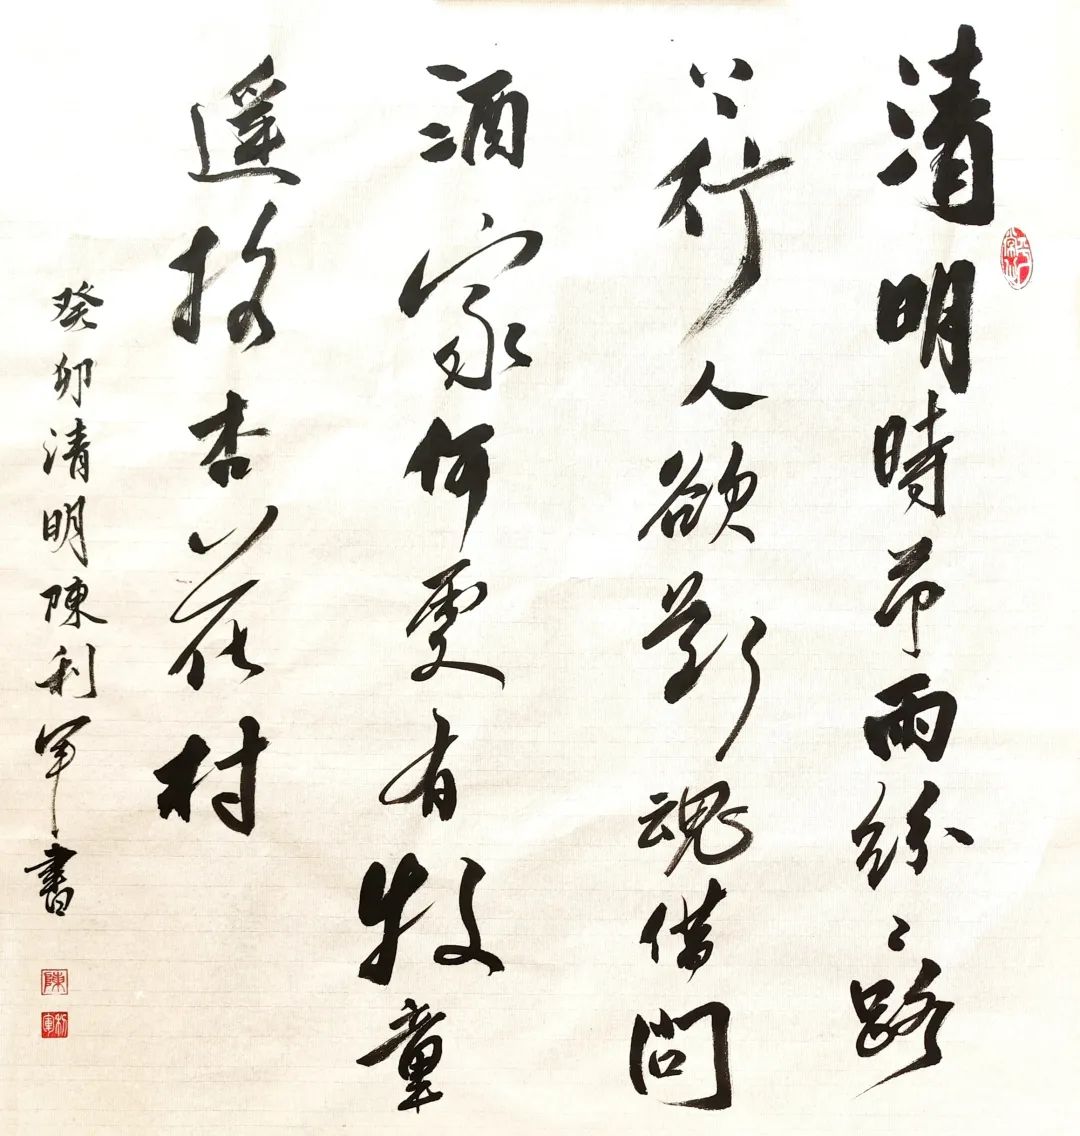 清明時節雨紛〻路
上行人欲斷魂借問
酒家何處有牧童
遙指杏花村
癸卯清明陳利軍書
陳
利軍